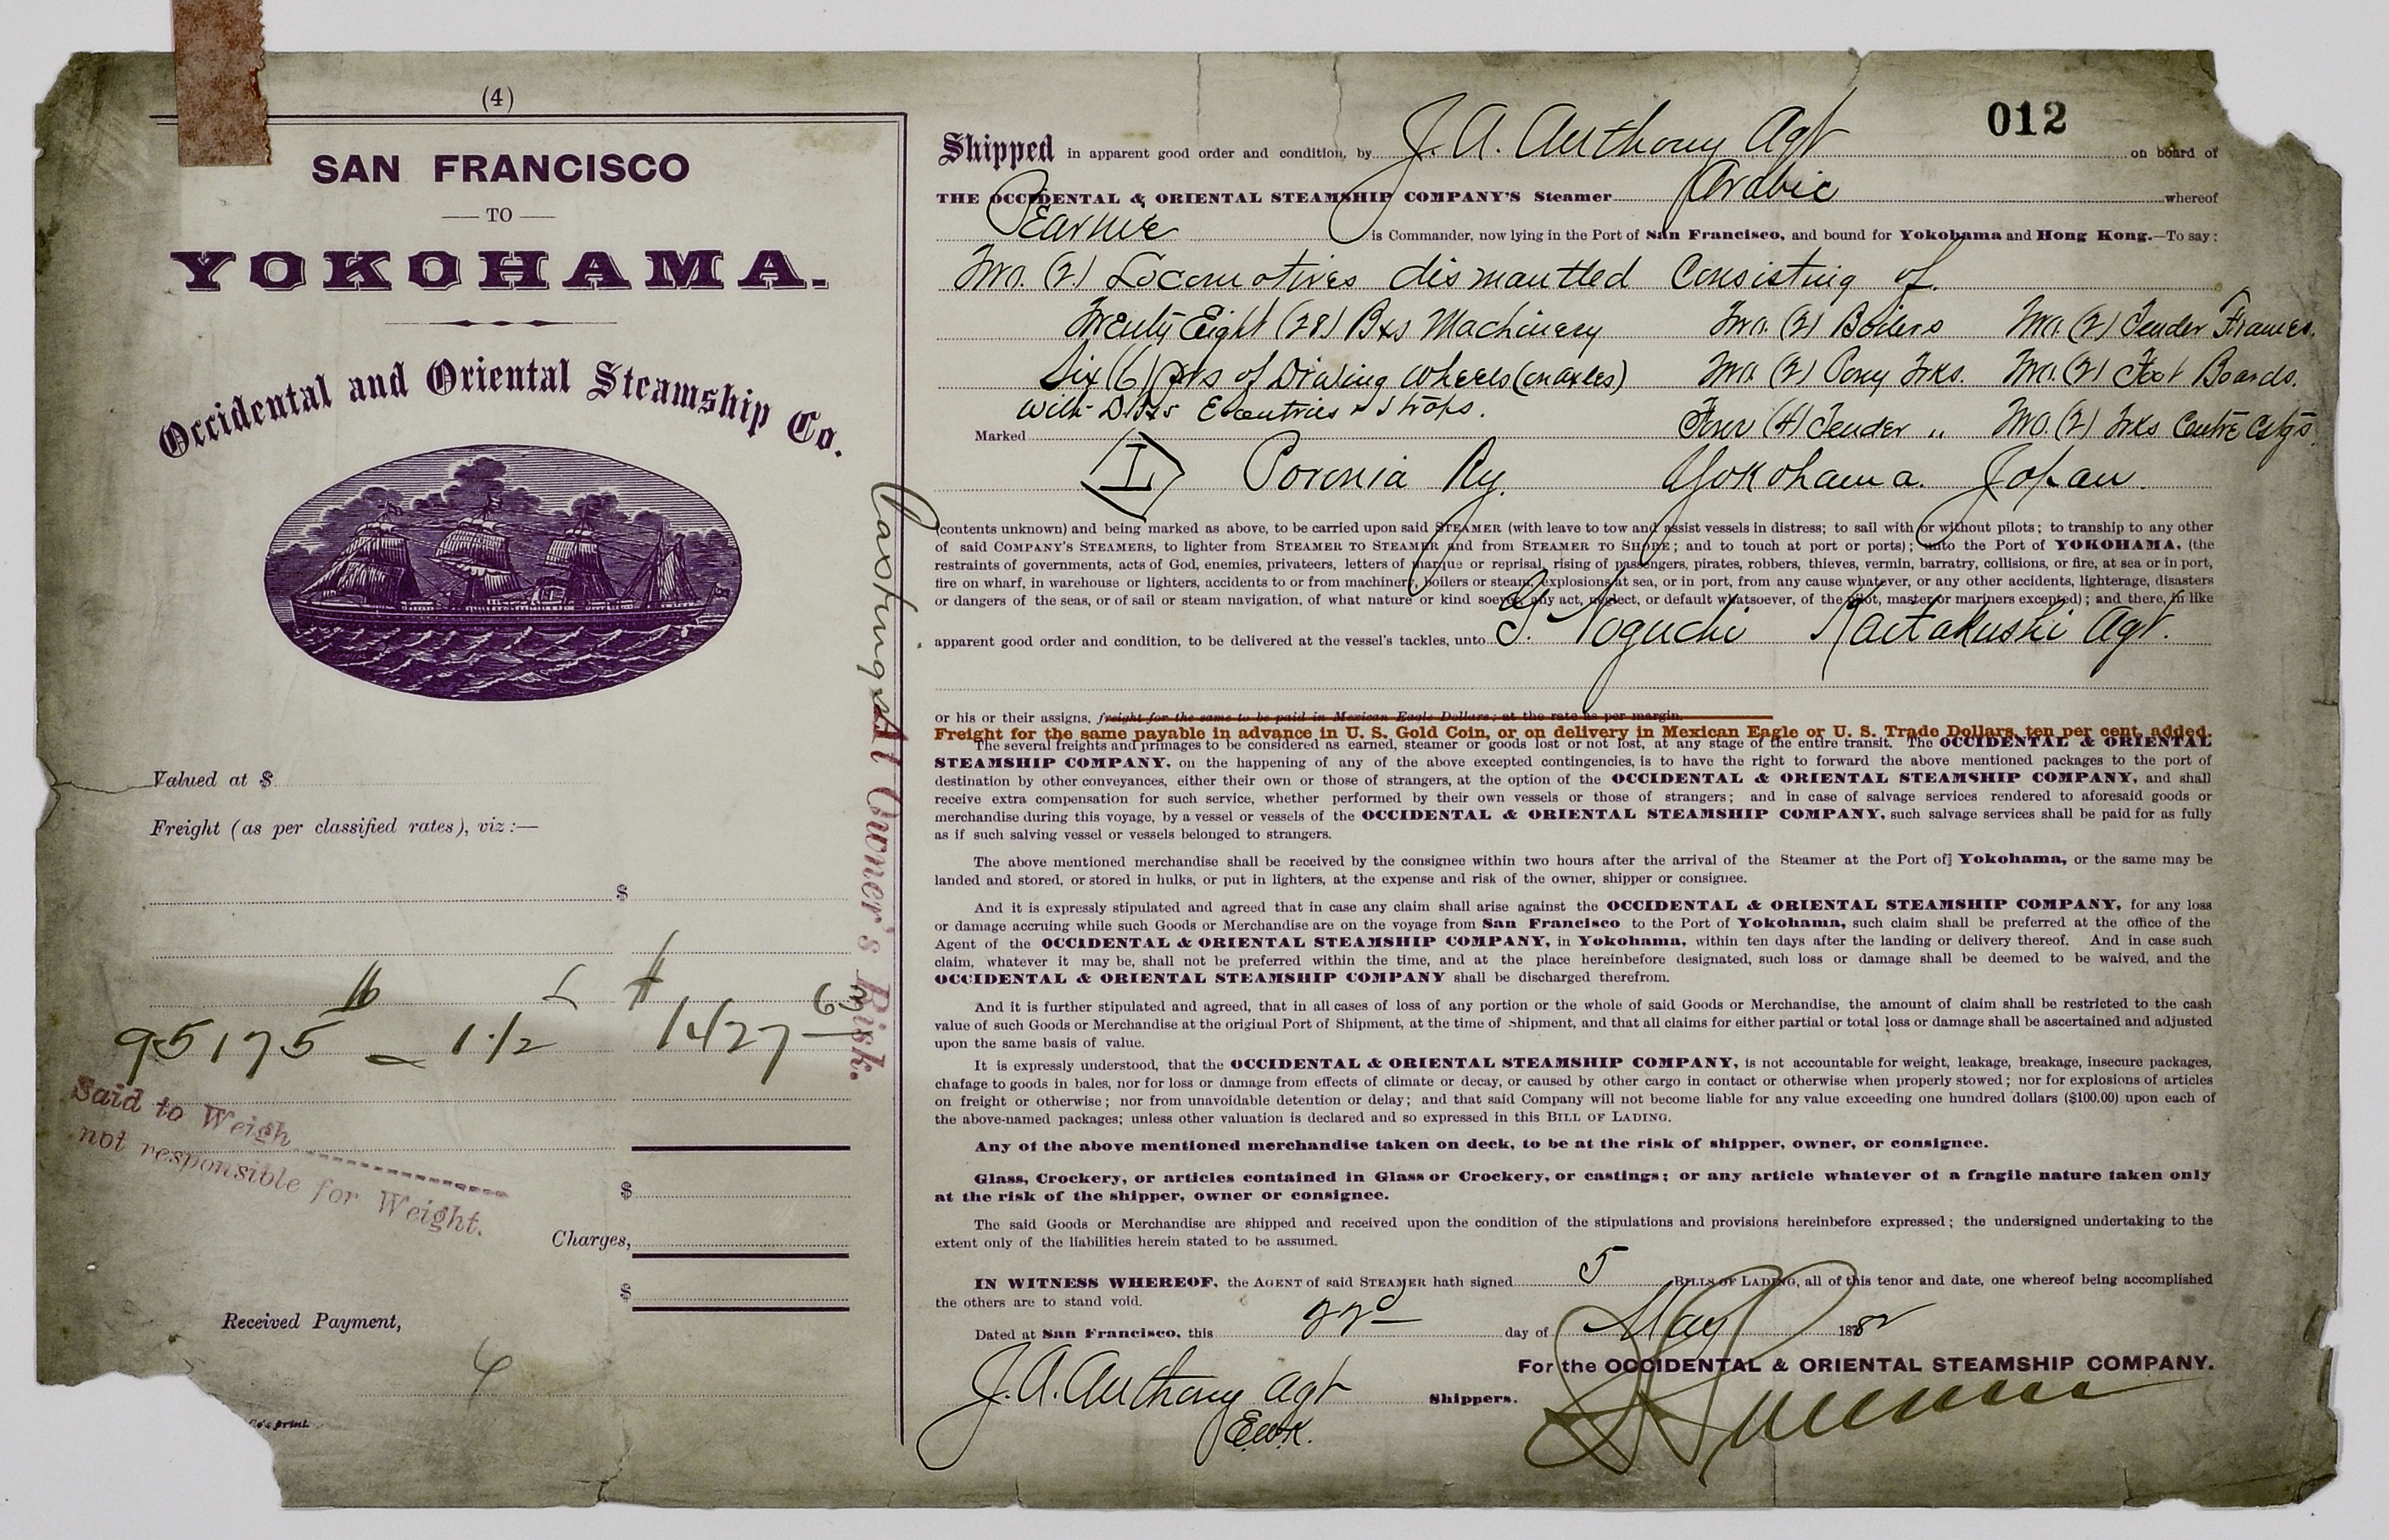 (4)
SAN FRANCISCO
TO
YOKOHAMA.
Occidental and Oriental Steamship Co.
Valued at $
Freight (as per classified rates), viz:—
$
lb $
95175 = 1 1/2 1427 63
Said to Weigh
not responsible for Weight.
$
Charges,
$
Received Payment,
Co's print.
Castings At Owner's Risk.
012
Shipped in apparent good order and condition, by J. A. Anthony Agt on board of
THE OCCIDENTAL & ORIENTAL STEAMSHIP COMPANY'S Steamer Arabic whereof
Pearne is Commander, now lying in the Port of San Francisco, and bound for Yokohama and Hong Kong.—To say:
Two. (2) Locomotives dismantled Consisting of.
Twenty Eight (28) Bxs Machinery Two. (2) Boilers Two. (2) Tender Frames.
Six (6) prs of Driving Wheels (on axles) Two. (2) Pony Trks. Two. (2) Foot Boards.
With Eccentrics & Straps. Four (4) Tender „ Two. (2) Trks Centre Cstgs
Marked
I Poronia Ry. Yokohama. Japan.
(contents unknown) and being marked as above, to be carried upon said STEAMER (with leave to tow and assist vessels in distress; to sail with or without pilots; to tranship to any other
of said COMPANY'S STEAMERS, to lighter from STEAMER TO STEAMER and from STEAMER TO SHORE; and to touch at port or ports); unto the Port of YOKOHAMA, (the
restraints of governments, acts of God, enemies, privateers, letters of marque or reprisal, rising of passengers, pirates, robbers, thieves, vermin, barratry, collisions, or fire, at sea or in port,
fire on wharf, in warehouse or lighters, accidents to or from machinery, boilers or steam, explosions at sea, or in port, from any cause whatever, or any other accidents, lighterage, disasters
or dangers of the seas, or of sail or steam navigation, of what nature or kind soever, any act, neglect, or default whatsoever, of the pilot, master or mariners excepted); and there, in like
apparent good order and condition, to be delivered at the vessel's tackles, unto G. Noguchi Kaitakushi Agt.
or his or their assigns, freight for the same to be paid in Mexican Eagle Dollars; at the rate as per margin.
Freight for the same payable in advance in U. S. Gold Coin, or on delivery in Mexican Eagle or U. S. Trade Dollars, ten per cent. added.
The several freights and primages to be considered as earned, steamer or goods lost or not lost, at any stage of the entire transit. The OCCIDENTAL & ORIENTAL
STEAMSHIP COMPANY, on the happening of any of the above excepted contingencies, is to have the right to forward the above mentioned packages to the port of
destination by other conveyances, either their own or those of strangers, at the option of the OCCIDENTAL & ORIENTAL STEAMSHIP COMPANY, and shall
receive extra compensation for such service, whether performed by their own vessels or those of strangers; and in case of salvage services rendered to aforesaid goods or
merchandise during this voyage, by a vessel or vessels of the OCCIDENTAL & ORIENTAL STEAMSHIP COMPANY, such salvage services shall be paid for as fully
as if such salving vessel or vessels belonged to strangers.
The above mentioned merchandise shall be received by the consignee within two hours after the arrival of the Steamer at the Port of Yokohama, or the same may be
landed and stored, or stored in hulks, or put in lighters, at the expense and risk of the owner, shipper or consignee.
And it is expressly stipulated and agreed that in case any claim shall arise against the OCCIDENTAL & ORIENTAL STEAMSHIP COMPANY, for any loss
or damage accruing while such Goods or Merchandise are on the voyage from San Francisco to the Port of Yokohama, such claim shall be preferred at the office of the
Agent of the OCCIDENTAL & ORIENTAL STEAMSHIP COMPANY, in Yokohama, within ten days after the landing or delivery thereof. And in case such
claim, whatever it may be, shall not be preferred within the time, and at the place hereinbefore designated, such loss or damage shall be deemed to be waived, and the
OCCIDENTAL & ORIENTAL STEAMSHIP COMPANY shall be discharged therefrom.
And it is further stipulated and agreed, that in all cases of loss of any portion or the whole of said Goods or Merchandise, the amount of claim shall be restricted to the cash
value of such Goods or Merchandise at the original Port of Shipment, at the time of Shipment, and that all claims for either partial or total loss or damage shall be ascertained and adjusted
upon the same basis of value.
It is expressly understood, that the OCCIDENTAL & ORIENTAL STEAMSHIP COMPANY, is not accountable for weight, leakage, breakage, insecure packages,
chafage to goods in bales, nor for loss or damage from effects of climate or decay, or caused by other cargo in contact or otherwise when properly stowed; nor for explosions of articles
on freight or otherwise; nor from unavoidable detention or delay; and that said Company will not become liable for any value exceeding one hundred dollars ($100.00) upon each of
the above-named packages; unless other valuation is declared and so expressed in this BILL OF LADING.
Any of the above mentioned merchandise taken on deck, to be at the risk of shipper, owner, or consignee.
Glass, Crockery, or articles contained in Glass or Crockery, or castings; or any article whatever of a fragile nature taken only
at the risk of the shipper, owner or consignee.
The said Goods or Merchandise are shipped and received upon the condition of the stipulations and provisions hereinbefore expressed; the undersigned undertaking to the
extent only of the liabilities herein stated to be assumed.
IN WITNESS WHEREOF, the AGENT of said STEAMER hath signed 5 BILLS OF LADING, all of this tenor and date, one whereof being accomplished
the others are to stand void.
Dated at San Francisco, this 22d day of May 1882
For the OCCIDENTAL & ORIENTAL STEAMSHIP COMPANY.
J. A. Anthony Agt Shippers.
E.W.K.